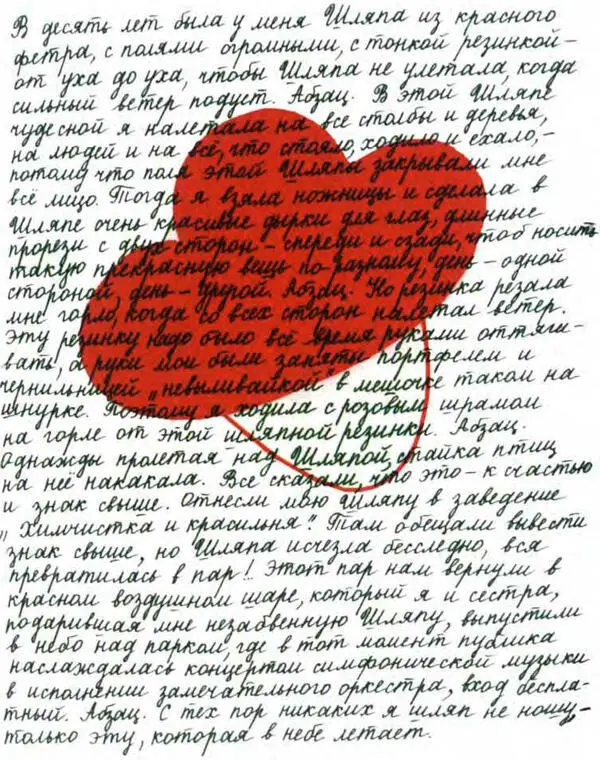 В десять лет была у меня Шляпа из красного
фетра, с полями огромными, с тонкой резинкой –
от уха до уха, чтобы Шляпа не улетала, когда
сильный ветер подуст. Абзац. В этой Шляпе
чудесной я налетала на все столбы и деревья,
на людей и на всё, что стояло, ходило и ехало, –
потому что поля этой Шляпы закрывали мне
всё лицо. Тогда я взяла ножницы и сделала в
Шляпе очень красивые дырки для глаз, длинные
прорези с двух сторон – спереди и сзади, чтоб носить
такую прекрасную вещь по-разному, день – одной
стороной, день – другой. Абзац. Но резинка резала
мне горло, когда со всех сторон налетал ветер.
Эту резинку надо было всё время руками оттяги-
вать, а руки мои были заняты портфелем и
чернильницей „невыливайкой" в мешочке таком на
шнурке. Поэтому я ходила с розовым шрамом
на горле от этой шляпной резинки. Абзац.
Однажды пролетая над Шляпой, стайка птиц
на неё накакала. Все сказали, что это – к счастью
и знак свыше. Отнесли мою Шляпу в заведение
„Химчистка и красильня". Там обещали вывести
знак свыше, но Шляпа исчезла бесследно, вся
превратилась в пар! Этот пар нам вернули в
красном воздушном шаре, который я и сестра,
подарившая мне незабвенную Шляпу, выпустили
в небо над парком, где в тот момент публика
наслаждалась концертом симфонической музыки
в исполнении замечательного оркестра, вход беспла-
тный. Абзац. С тех пор никаких я шляп не ношу, –
только эту, которая в небе летает.